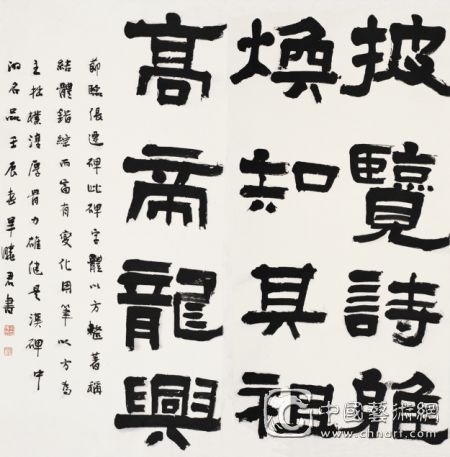 披覽詩雅
煥知其祖
高帝龍興
節臨張遷碑此碑字體以方整著稱
結體錯綜而富有變化用筆以方為
主拙樸淳厚骨力雄健是漢碑中
的名品壬辰春君書
中國藝術網
www.chnart.com